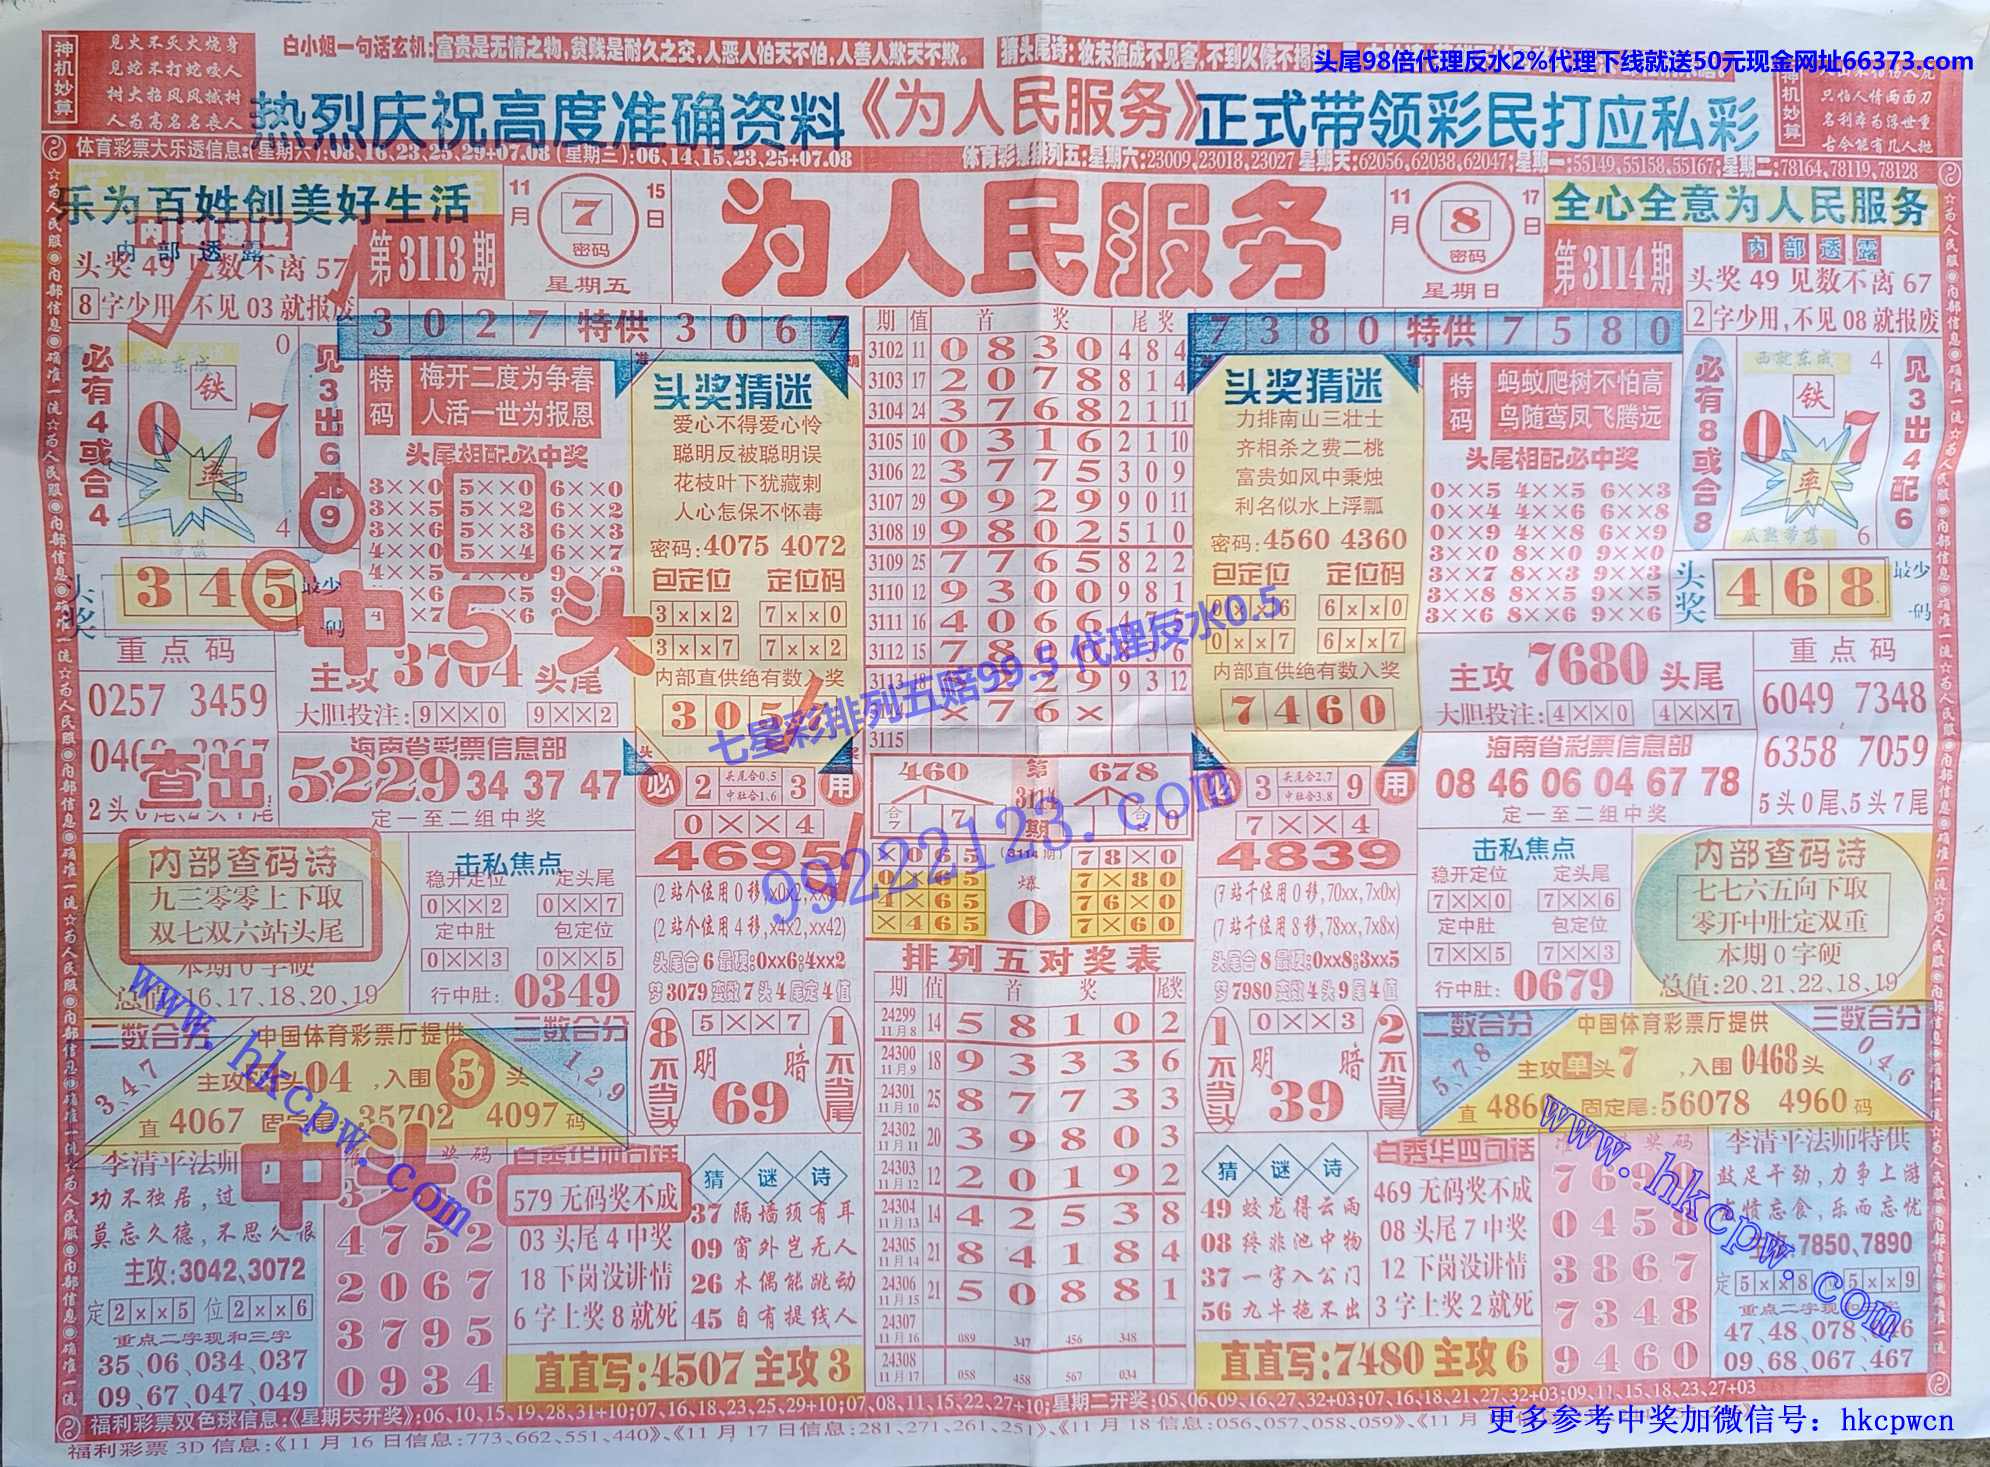 头尾98倍代理反水2%代理下线就送50元现金网址66373.com
神机妙算
见火不灭火烧身
见蛇不打蛇咬人
树大招风风撼树
人为高名名丧人
白小姐一句话玄机:富贵是无情之物,贫贱是耐久之交,人恶人怕天不怕,人善人欺天不欺。
猜头尾诗:妆未梳成不见客,不到火候不揭
热烈庆祝高度准确资料《为人民服务》正式带领彩民打应私彩
神机妙算
只怕人情两面刀
名利本为浮世重
古今能有几人抛
体育彩票大乐透信息:(星期六):08,16,23,25,29+07.08 (星期三):06,14,15,23,25+07.08
体育彩票排列五:星期六:23009,23018,23027 星期天:62056,62038,62047;星期一:55149,55158,55167;星期二:78164,78119,78128
乐为百姓创美好生活
内部透露
头奖 49 见数不离 57
8字少用,不见 03 就报废
第3113期
11月
7
密码
15日
星期五
为人民服务
11月
8
密码
17日
星期日
第3114期
全心全意为人民服务
内部透露
头奖 49 见数不离 67
2字少用,不见 08 就报废
3027特供3067
7380特供7580
必有4或合4
西就东成
铁
0
7
率
0
4
见3出6配9
特码
梅开二度为争春
人活一世为报恩
头尾相配必中奖
3××0 5××0 6××0
3××5 5××2 6××2
3××6 5××3 6××3
4××0 5××4 6××7
头奖猜迷
爱心不得爱心怜
聪明反被聪明误
花枝叶下犹藏刺
人心怎保不怀毒
密码:4075 4072
包定位 定位码
3××2 7××0
3××7 7××2
内部直供绝有数入奖
305
期 值 首 奖 尾 奖
3102 11 0 8 3 0 4 8 4
3103 17 2 0 7 8 8 1 4
3104 24 3 7 6 8 2 1 11
3105 10 0 3 1 6 2 1 10
3106 22 3 7 7 5 3 0 9
3107 29 9 9 2 9 9 0 11
3108 19 9 8 0 2 5 1 0
3109 25 7 7 6 5 8 2 2
3110 12 9 3 0 0 9 8 1
3111 16 4 0 6 6
3112 15 7 8
3113 18 2 9 9 3 12
× 7 6 ×
3115
头奖猜迷
力排南山三壮士
齐相杀之费二桃
富贵如风中秉烛
利名似水上浮瓢
密码:4560 4360
包定位 定位码
0××6 6××0
0××7 6××7
内部直供绝有数入奖
7460
特码
蚂蚁爬树不怕高
鸟随鸾凤飞腾远
头尾相配必中奖
0××5 4××5 6××3
0××4 4××6 6××8
0××9 4××8 6××9
3××0 8××0 9××0
3××7 8××3 9××3
3××8 8××5 9××5
3××6 8××6 9××8
必有8或合8
西就东成
铁
0
7
率
瓜熟蒂落
4
6
见3出4配6
头奖
345
最少一码
中5头
头奖
468
最少一码
重点码
0257 3459
主攻3704头尾
大胆投注:9××0 9××2
海南省彩票信息部
5229 34 37 47
定一至二组中奖
查出
主攻7680头尾
大胆投注:4××0 4××7
海南省彩票信息部
08 46 06 04 67 78
定一至二组中奖
重点码
6049 7348
6358 7059
5头0尾、5头7尾
七星彩排列五赔99.5 代理反水0.5
99222123.com
必
2
头尾合0.5
中肚合1.6
3
用
0××4
4695
(2 站个位用 0 移,x0x2,xx0
(2 站个位用 4 移,x4x2,xx42)
头尾合 6 最硬:0xx6;4xx2
梦 3079 变数 7 头 4 尾定 4 值
460
第3114期
678
合7
7
合8
0
×065 (3114期) 78×0
0×65 爆 7×80
4×65 0 76×0
×465 7×60
3
头尾合2.7
中肚合3.8
9
用
7××4
4839
(7 站千位用 0 移,70xx,7x0x)
(7 站千位用 8 移,78xx,7x8x)
头尾合 8 最硬:0xx8;3xx5
梦 7980 变数 4 头 9 尾 4 值
内部查码诗
九三零零上下取
双七双六站头尾
本期 0 字硬
总值:16、17、18、20、19
击私焦点
稳开定位 定头尾
0××2 0××7
定中肚 包定位
0××3 0××5
行中肚:0349
击私焦点
稳开定位 定头尾
7××0 7××6
定中肚 包定位
7××5 7××3
行中肚:0679
内部查码诗
七七六五向下取
零开中肚定双重
本期 0 字硬
总值:20、21、22、18、19
排列五对奖表
期 值 首 奖 尾奖
24299 11月8 14 5 8 1 0 2
24300 11月9 18 9 3 3 3 6
24301 11月10 25 8 7 7 3 3
24302 11月11 20 3 9 8 0 3
24303 11月12 12 2 0 1 9 2
24304 11月13 14 4 2 5 3 8
24305 11月14 21 8 4 1 8 4
24306 11月15 21 5 0 8 8 1
24307 11月16 089 347 456 348
24308 11月17 058 458 567 034
二数合分
3、4、7
中国体育彩票厅提供
主攻 头04,入围5头
直4067 固定尾:35702 4097码
三数合分
1、2、9
8不当头
5××7
明 暗
69
1不当尾
1不当头
0××3
明 暗
39
2不当尾
二数合分
5、7、8
中国体育彩票厅提供
主攻单头7,入围0468头
直486 固定尾:56078 4960码
三数合分
0、4、6
www.hkcpw.com
中头
李清平法师
功不独居,过
莫忘久德,不思久恨
主攻:3042、3072
定2××5 位2××6
重点二字现和三字
35、06、034、037
09、67、047、049
4752
2067
3795
0934
白秀华四句话
579 无码奖不成
03 头尾 4 中奖
18 下岗没讲情
6 字上奖 8 就死
猜谜诗
37 隔墙须有耳
09 窗外岂无人
26 木偶能跳动
45 自有提线人
直直写:4507 主攻 3
猜谜诗
49 蛟龙得云雨
08 终非池中物
37 一字入公门
56 九牛拖不出
白秀华四句话
469 无码奖不成
08 头尾 7 中奖
12 下岗没讲情
3 字上奖 2 就死
直直写:7480 主攻 6
0458
3867
7348
9460
李清平法师特供
鼓足干劲,力争上游
发愤忘食,乐而忘忧
主攻:7850、7890
定5××8 5××9
重点二字现和三字
47、48、078、046
09、68、067、467
www.hkcpw.com
福利彩票双色球信息:《星期天开奖》:06,10,15,19,28,31+10;07,16,18,23,25,29+10;07,08,11,15,22,27+10;星期二开奖:05,06,09,16,27,32+03;07,16,18,21,27,32+03;09,11,15,18,23,27+03
福利彩票 3D 信息:《11 月 16 日信息:773、662、551、440》、《11 月 17 日信息:281、271、261、251》、《11 月 18 信息:056、057、058、059》、《11 月
更多参考中奖加微信号：hkcpwcn